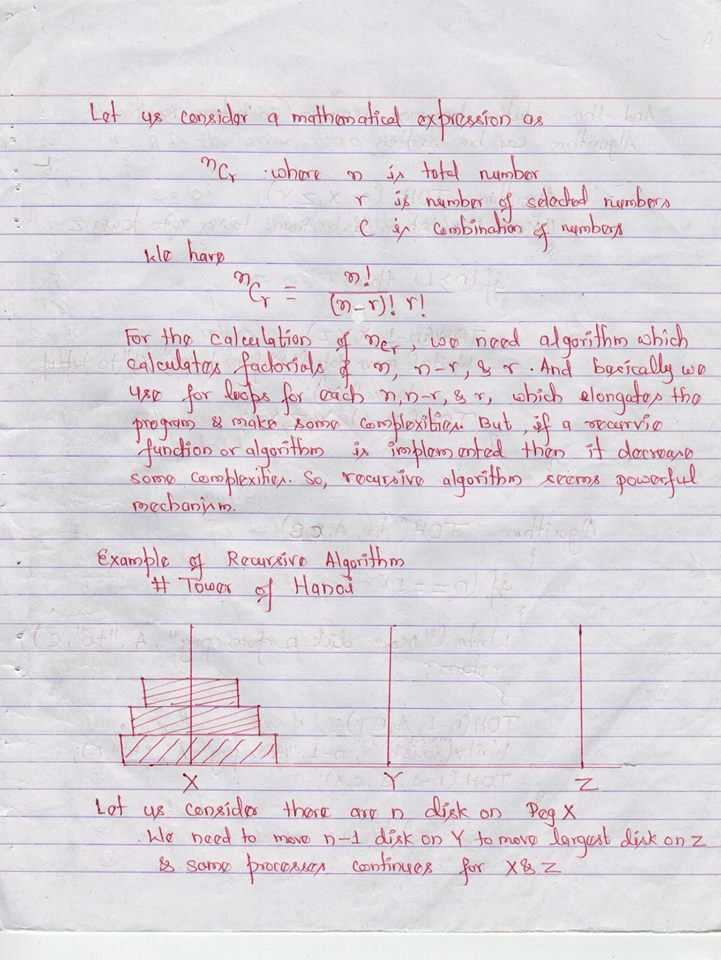 Let us consider a mathematical expression as
nCr where n is total number
r is number of selected numbers
C is combination of numbers
We have
nCr = n! / (n-r)! r!
For the calculation of nCr, we need algorithm which
calculates factorials of n, n-r, & r. And basically we
use for loops for each n, n-r, & r, which elongates the
program & make some complexities. But, if a recurvie
function or algorithm is implemented then it decrease
some complexities. So, recursive algorithm seems powerful
mechanism.
Example of Recursive Algorithm
# Tower of Hanoi
X Y Z
Let us consider there are n disk on Peg X
We need to move n-1 disk on Y to move largest disk on Z
& same processes continues for X & Z